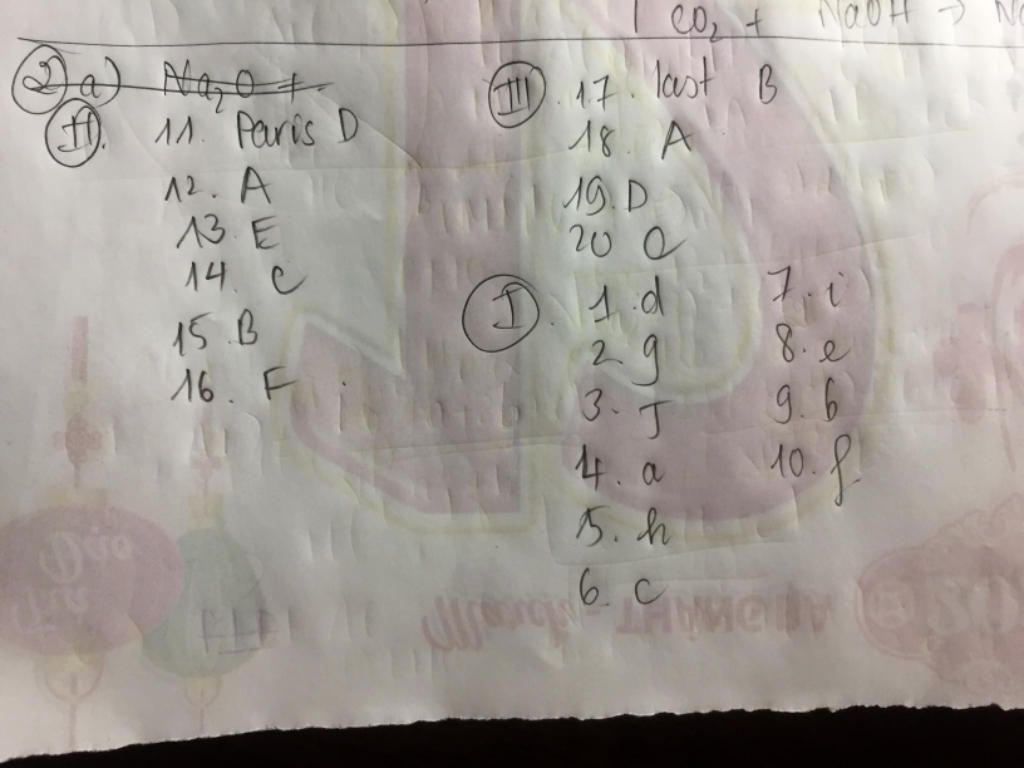 CO₂ + NaOH → Na
2 a) Na₂O +
II. 11. Paris D
12. A
13. E
14. C
15. B
16. F.
III. 17. last B
18. A
19. D
20 C
I. 1. d
2. g
3. J
4. a
5. h
6. c
7. i
8. e
9. b
10. f
March - THÁNG BA